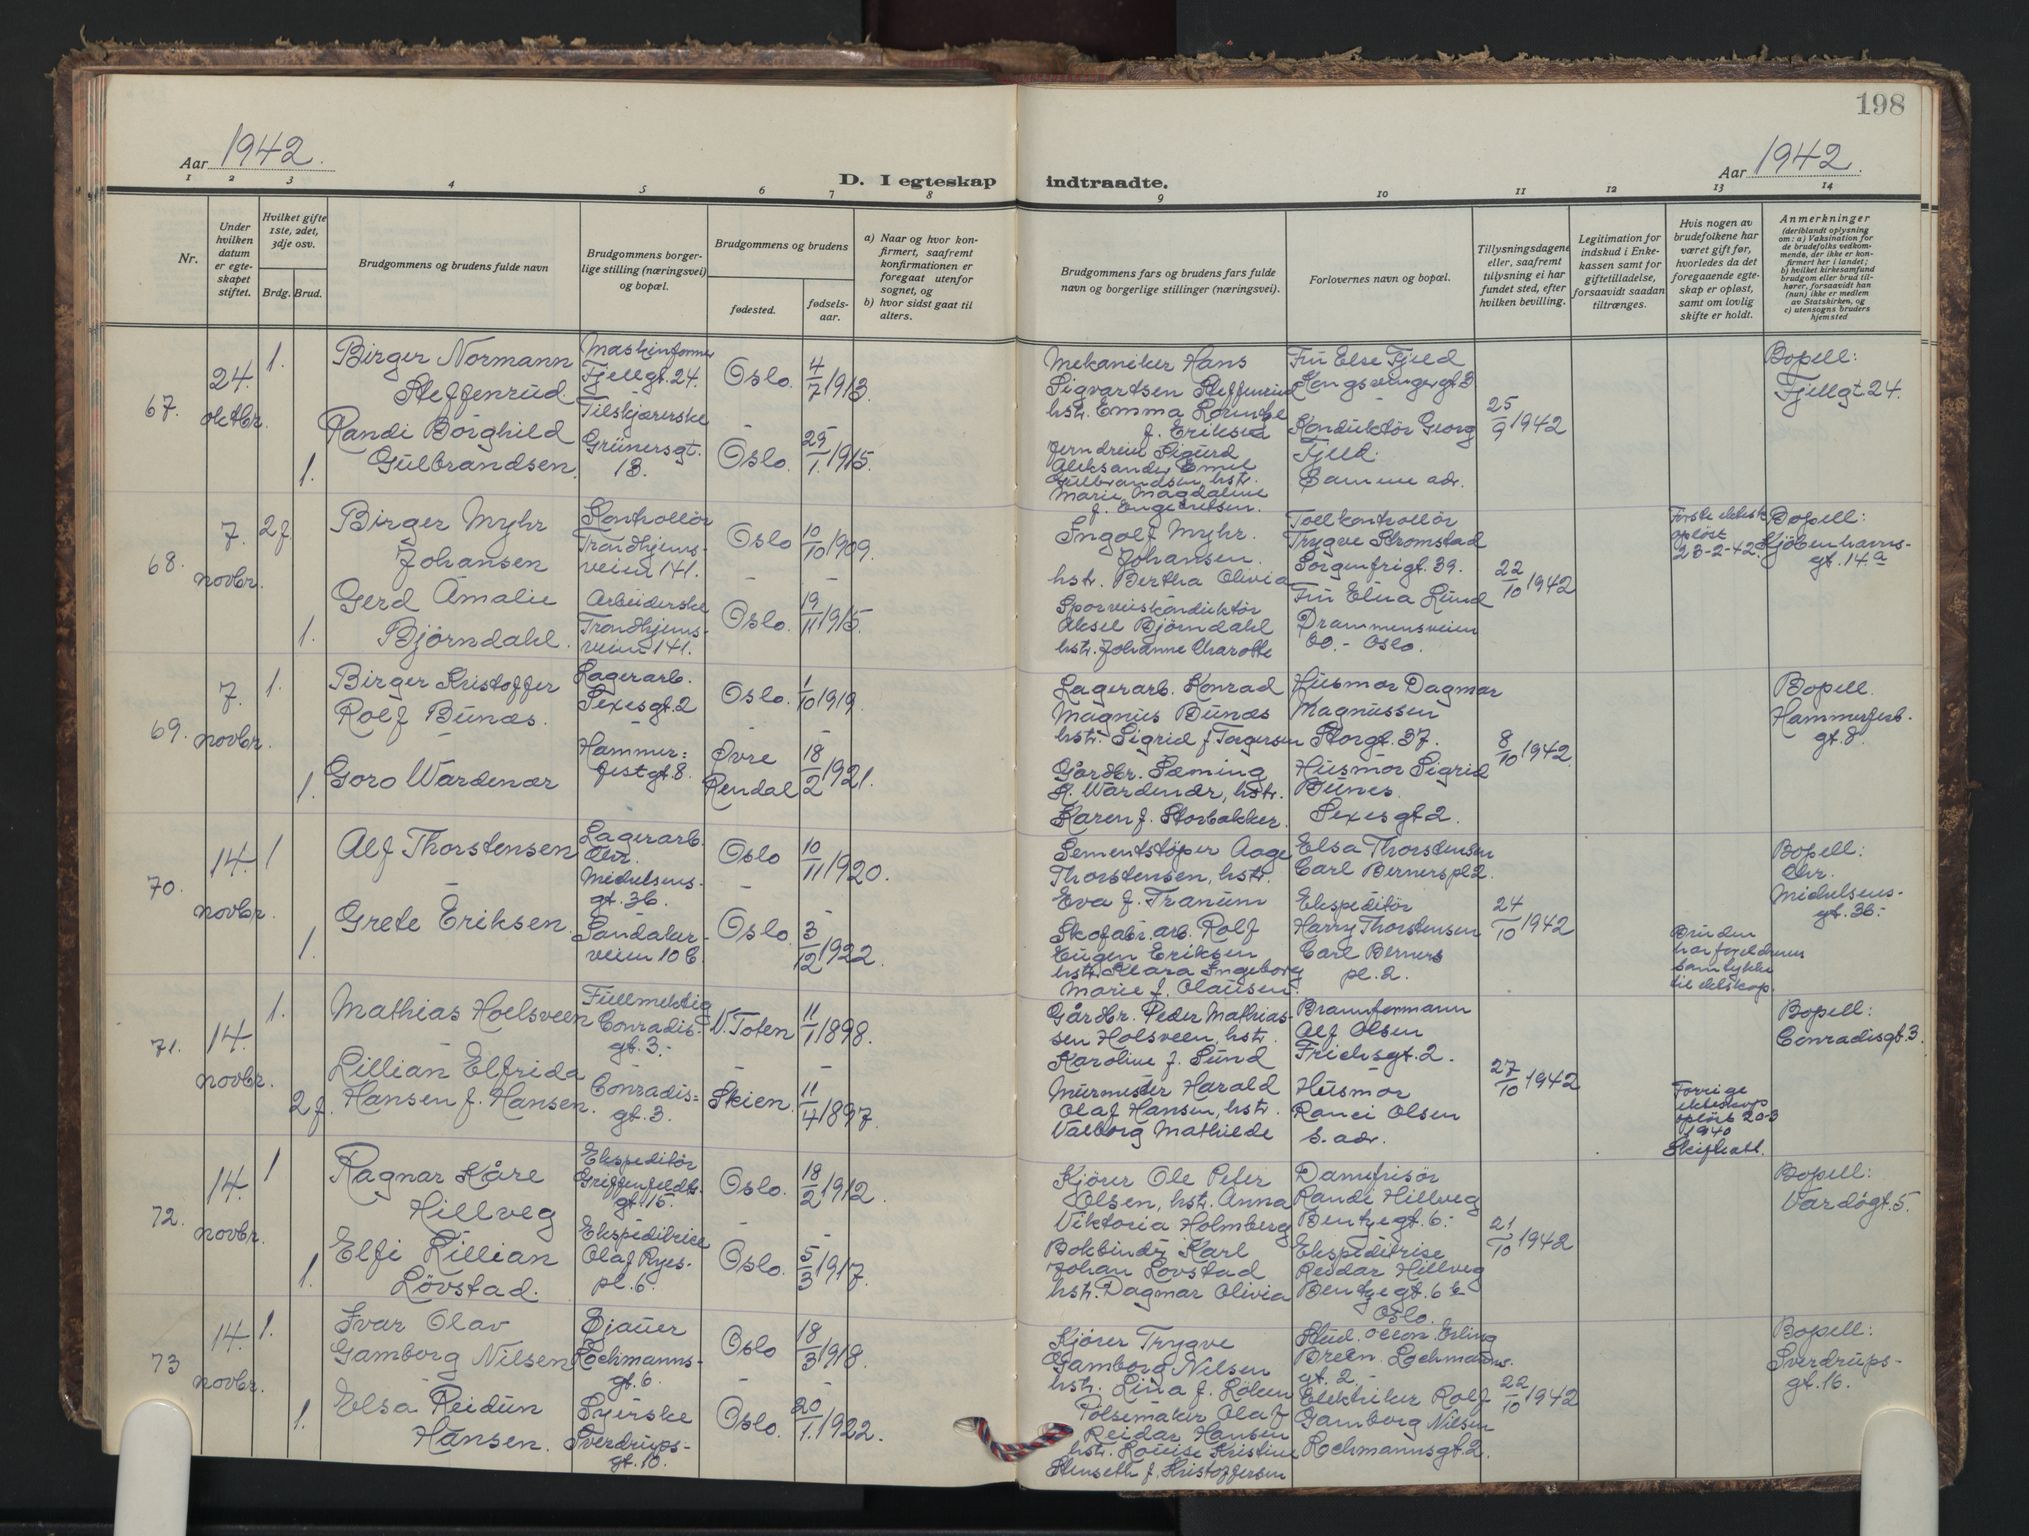 198
Aar 1942.
Aar 1942.
D. I egteskap indtraadte.
1 2 3 4 5 6 7 8 9 10 11 12 13 14
Nr.
Under hvilken datum er egteskapet stiftet.
Hvilket gifte 1ste, 2det, 3dje osv.
Brdg. Brud.
Brudgommens og brudens fulde navn
Brudgommens borgerlige stilling (næringsvei) og bopæl.
Brudgommens og brudens
fødested.
fødselsaar.
a) Naar og hvor konfirmert, saafremt konfirmationen er foregaat utenfor sognet, og
b) hvor sidst gaat til alters.
Brudgommens fars og brudens fars fulde navn og borgerlige stillinger (næringsvei).
Forlovernes navn og bopæl.
Tillysningsdagene eller, saafremt tillysning ei har fundet sted, efter hvilken bevilling.
Legitimation for indskud i Enkekassen samt for giftetilladelse, forsaavidt saadan tiltrænges.
Hvis nogen av brudefolkene har været gift før, hvorledes da det foregaaende egteskap er opløst, samt om lovlig skifte er holdt.
Anmerkninger
(deriblandt oplysning om: a) Vaksination for de brudefolks vedkommende, der ikke er konfirmert her i landet;
b) hvilket kirkesamfund brudgom eller brud tilhører, forsaavidt han (hun) ikke er medlem av Statskirken, og
c) utensogns bruders hjemsted
67.
24. oktbr.
1.
Birger Normann
Steffenrud.
Maskinformer
Fjellgt. 24.
Oslo.
4/7 1913.
1.
Randi Borghild
Gulbrandsen.
Tilskjærerske
Grünersgt.
18.
Oslo.
25/1. 1915.
Mekaniker Hans
Sigvartsen Steffenrud
hstr. Emma
f. Eriksen
Jerndreier Sigurd
Aleksander Emil
Gulbrandsen, hstr.
Marie Magdalene
f. Engebretsen.
Fru Else Fjeld
Kongsvingergt. 3
Konduktör Georg
Fjeld.
Samme adr.
25/9 1942
Bopell:
Fjellgt. 24.
68.
7. novbr.
2 f
Birger Myhr
Johansen
Kontrollör
Trondhjems-
veien 141.
Oslo
10/10 1909.
1.
Gerd Amalie
Björndahl.
Arbeiderske
Trondhjems-
veien 141.
Oslo.
19/11 1915.
Ingolf Myhr.
Johansen.
hstr. Bertha Olivia
Sporveiskonduktör
Aksel Björndahl
hstr. Johanne Charotte
Tollkontrollör
Trygve Stromstad
Sorgenfrigt. 39.
Fru Elna Lund
Drammensveien
60. - Oslo.
22/10 1942
Forste ektesk.
opløst
23-2-42.
Bopell:
Kjöbenhavns-
gt. 14a
69.
7. novbr.
1.
Birger Kristoffer
Rolf Bunæs.
Lagerarb.
Sexesgt. 2
Oslo.
1/10 1919.
1.
Goro Wardenær
Hammer=
festgt. 8.
Øvre
Rendal
18/2 1921.
Lagerarb. Konrad
Magnus Bunæs
hstr. Sigrid f. Torgersen
Gårdbr. Sæming
K. Wardenær, hstr.
Karen f. Storbakker.
Husmor Dagmar
Magnussen
Storgt. 37.
Husmor Sigrid
Bunes.
Sexesgt 2.
8/10 1942.
Bopell.
Hammerfest-
gt. 8.
70.
14. novbr
1
Alf Thorstensen
Lagerarb.
Chr.
Michelsens-
gt. 36.
Oslo
10/11 1920.
1.
Grete Eriksen
Sandaker-
veien 10 C.
Oslo.
3/12 1922.
Sementstøper Aage
Thorstensen, hstr.
Eva f. Tranum
Skofabr. arb. Rolf
Eugen Eriksen
hstr. Klara Ingeborg
Marie f. Olausen.
Elsa Thorstensen
Carl Berners pl 2.
Ekspeditör
Harry Thorstensen
Carl Berners
pl. 2.
24/10 1942
Bruden
har foreldrenes
samtykke
til ekteskap.
Bopell:
Chr.
Michelsens-
gt. 36.-
71.
14. novbr.
1.
Mathias Hoelsveen
Fullmektig
Conradis-
gt. 3.-
V. Toten
11/1 1898.
2 f.
Lillian Elfrida
Hansen f. Hansen.
Conradis=
gt. 3.
Skien.
11/4 1897.
Gårdbr. Peder Mathias-
sen Holsveen, hstr.
Karoline f. Sund
Murmester Harald
Olaf Hansen, hstr.
Valborg Mathilde
Brannformann
Alf Olsen
Frichsgt. 2.
Husmor
Ranci Olsen
s. adr.
27/10 1942
Forrige
ekteskap
opløst 20-3
1940
Skifteatt.
Bopell:
Conradisgt. 3.
72.
14. novbr.
1
Ragnar Kåre
Hillveg
Ekspeditör
Griffenfeldts-
gt. 15.
Oslo.
18/2 1912.
1.
Elfi Lillian
Lövstad.
Ekspeditrise
Olaf Ryes-
pl. 6.
Oslo.
5/3 1917.
Kjörer Ole Peter
Olsen, hstr. Anna
Viktoria Holmberg
Bokbinder Karl
Johan Lovstad
hstr. Dagmar Olivia
Damefrisör
Randi Hillveg
Bentzegt. 6.-
Ekspeditrise
Reidar Hillveg
Bentzegt. 6 b
Oslo.
21/10 1942
Bopell:
Vardögt. 5.
73
14. novbr.
1.
Ivar Olav
Gamborg Nilsen
Sjauer
Lochmanns-
gt. 6.
Oslo
18/3 1918.
1.
Elsa Reidun
Hansen.
Syerske
Sverdrups-
gt. 10.
Oslo.
20/1. 1922.
Kjörer Trygve
Gamborg Nilsen
hstr. Lina f. Löken
Pölsemaker Olaf
Reidar Hansen
hstr. Louise Kristine
Stenseth f. Kristoffersen
Stud. oecon. Erling
Breen. Lochmanns.
gt. 2.-
Elektriker Rolf
Gamborg Nilsen
Lochmannsgt. 2.
22/10 1942
Bopell:
Sverdrups-
gt. 16.